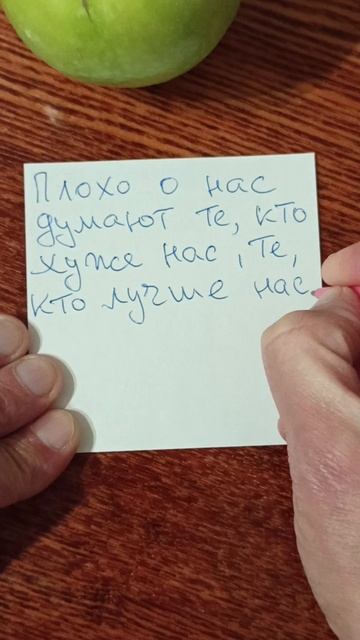 Плохо о нас
думают те, кто
хуже нас, те,
кто лучше нас